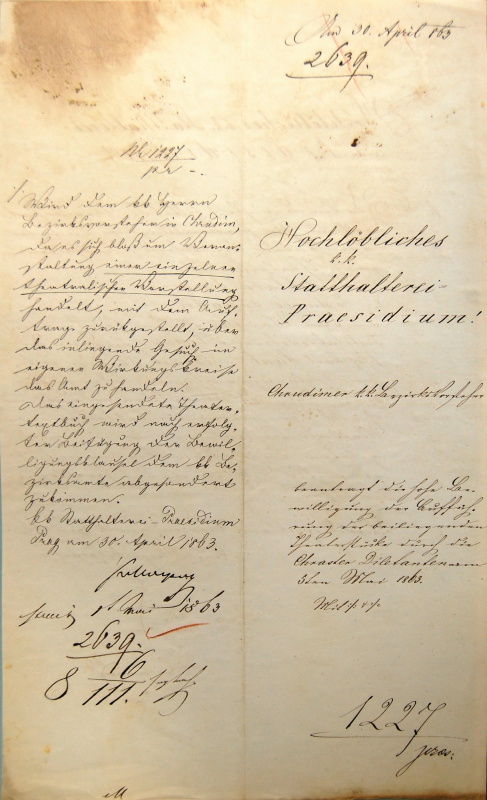 Am 30. April 863
2639.
Nr 1227
pr –.
Wird dem kk Herrn
Bezirksvorsteher in Chrudim,
da es sich bloß um Veran-
staltung einer einzelnen
theatralischen Vorstellung
handelt, mit dem Auf-
trage zurückgestellt, über
das inliegende Gesuch im
eigenen Wirkungskreise
das Amt zu handeln.
Das eingesendete Theater-
textbuch wird nach erfolg-
ter Beifügung der Bewil-
ligungsklausel dem kk Be-
zirksamte abgesondert
zukommen.
kk Statthalterei-Praesidium
Prag am 30. April 1863.
1 Mai 1863
2639.
16
8 111.
Hochlöbliches
k.k.
Statthalterei-
Praesidium!
Chrudimer k.k. Bezirksvorsteher
beantragt die hohe Be-
willigung der Auffüh-
rung der beiliegenden
Theaterstücke durch die
Chraster Diletanten am
5ten Mai 863.
1227
praes: